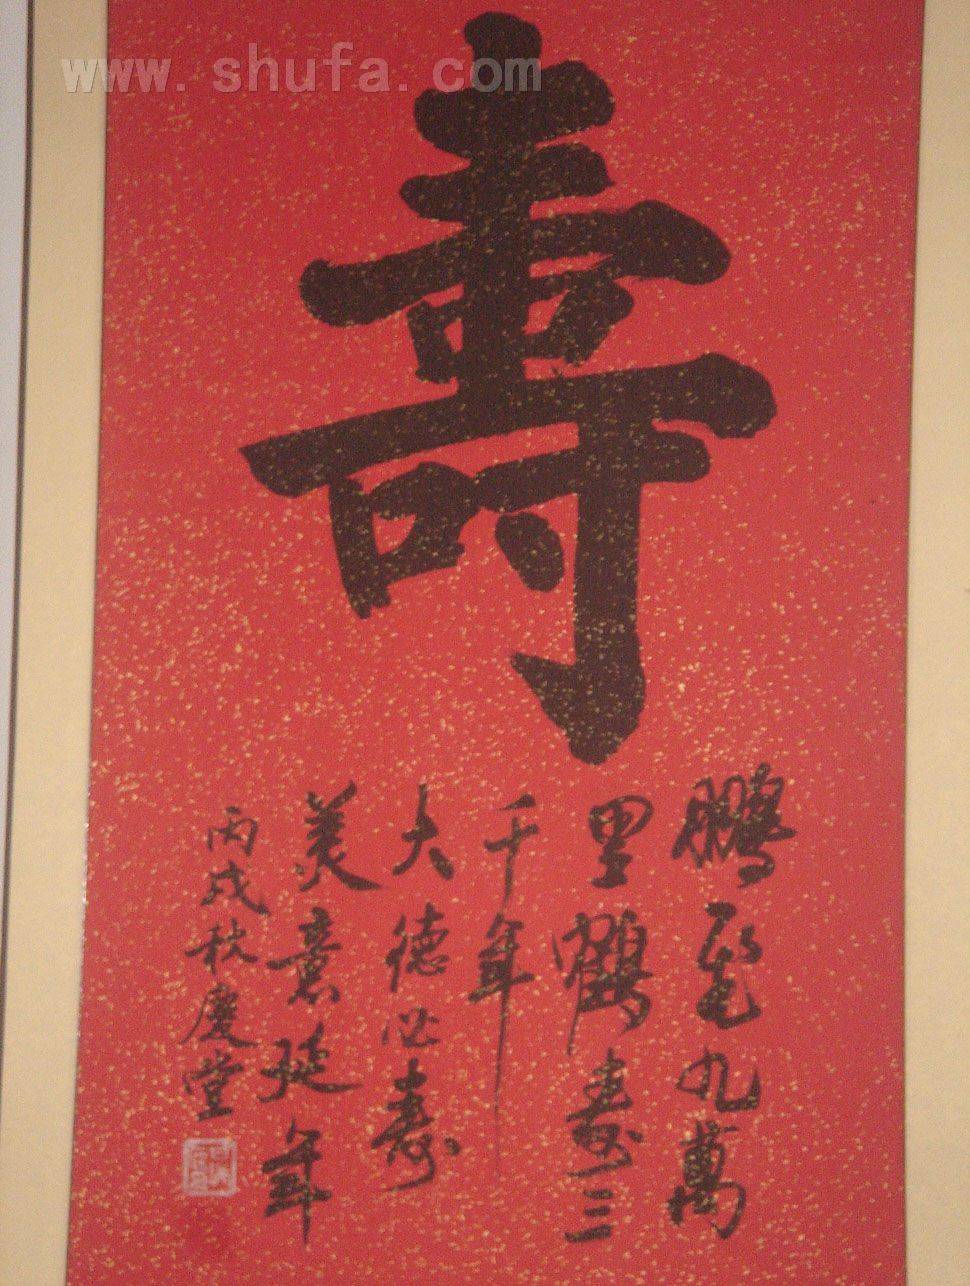 www.shufa.com
壽
鵬飛九萬
里鶴壽三
千年
大德必壽
美意延年
丙戌秋慶堂